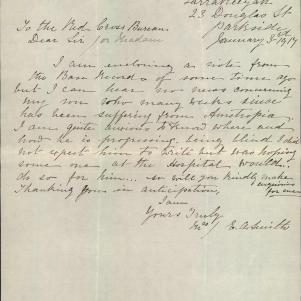 23 Douglas St
Parkside
January 3rd 1917
To the Red Cross Bureau.
Dear Sir for Madam
I am enclosing a note from
the Base Records of some time ago
but I can hear no news concerning
my son who many weeks since
has been suffering from Ametropia.
I am quite anxious to know where and
how he is progressing, being blind I did
not expect him to write but was hoping
some one at the Hospital would
do so for him... so will you kindly make
enquiries
Thanking you in anticipation, for me
I am
Yours Truly
Mrs E. A. Smith